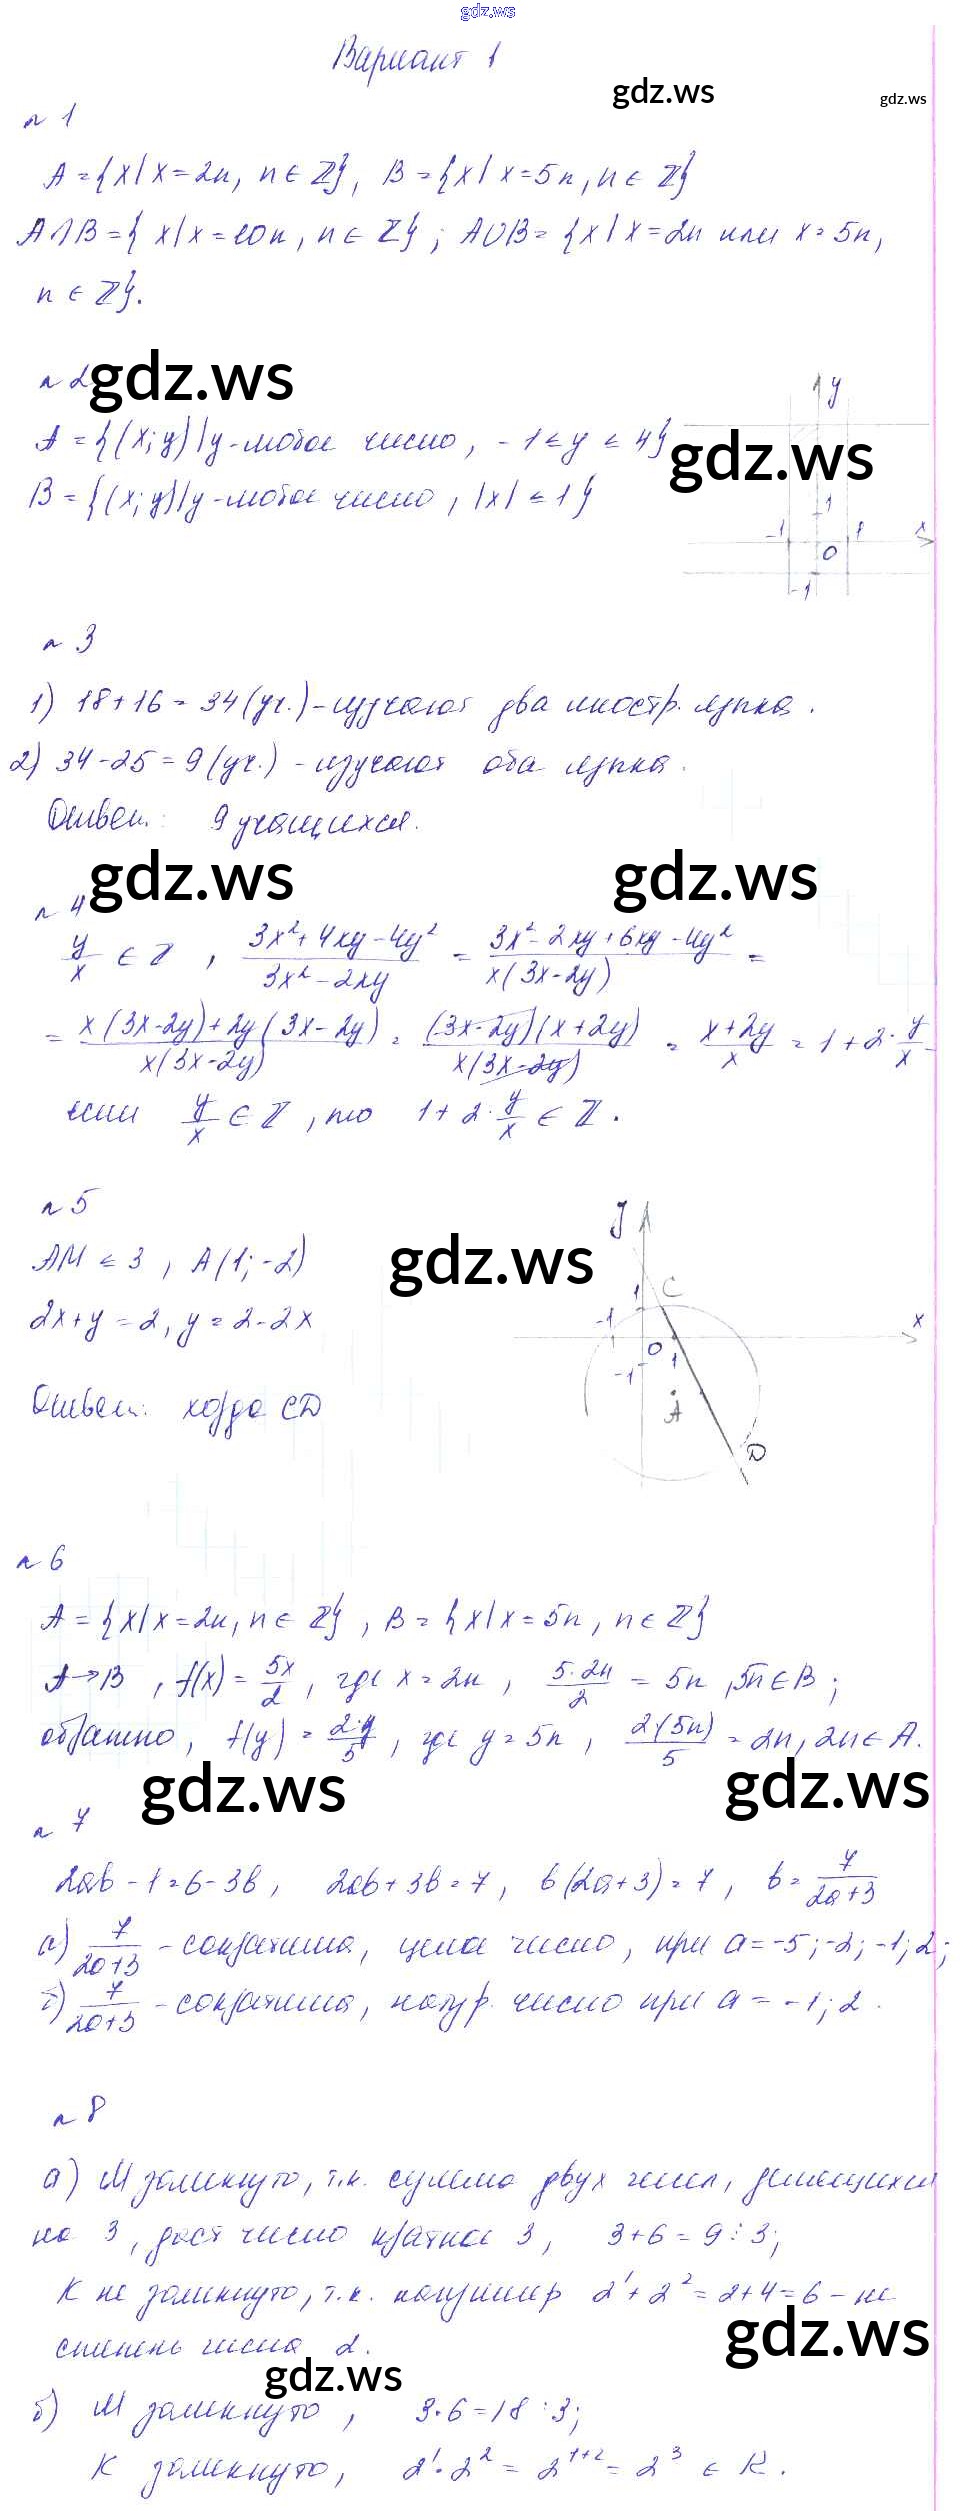 gdz.ws
Вариант 1
gdz.ws
gdz.ws
n 1
A = {x | x = 2n, n ∈ Z}, B = {x | x = 5n, n ∈ Z}
A∩B = {x | x = 10n, n ∈ Z}; A∪B = {x | x = 2n или x = 5n,
n ∈ Z}.
n 2
gdz.ws
A = {(x; y) | y - любое число, -1 ≤ y ≤ 4}
B = {(x; y) | y - любое число, |x| ≤ 1}
gdz.ws
y
1
-1 1 x
0
-1
n 3
1) 18 + 16 = 34 (уч.) - изучают два иностр. языка.
2) 34 - 25 = 9 (уч.) - изучают оба языка.
Ответ: 9 учащихся.
gdz.ws
gdz.ws
n 4
y/x ∈ Z, (3x² + 4xy - 4y²)/(3x² - 2xy) = (3x² - 2xy + 6xy - 4y²)/(x(3x - 2y)) =
= (x(3x - 2y) + 2y(3x - 2y))/(x(3x - 2y)) = ((3x - 2y)(x + 2y))/(x(3x - 2y)) = (x + 2y)/x = 1 + 2 · y/x -
если y/x ∈ Z, то 1 + 2 · y/x ∈ Z.
n 5
AM ≤ 3, A(1; -2)
gdz.ws
2x + y = 2, y = 2 - 2x
Ответ: хорда CD
y
C
1
-1 x
0 1
-1
A
D
n 6
A = {x | x = 2n, n ∈ Z}, B = {x | x = 5n, n ∈ Z}
A → B, f(x) = 5x/2, где x = 2n, (5 · 2n)/2 = 5n, 5n ∈ B;
обратно, f(y) = (2 · y)/5, где y = 5n, (2 · (5n))/5 = 2n, 2n ∈ A.
gdz.ws
gdz.ws
n 7
2ab - 1 = 6 - 3b, 2ab + 3b = 7, b(2a + 3) = 7, b = 7/(2a + 3)
а) 7/(2a + 3) - сократима, цела число, при a = -5; -2; -1; 2;
б) 7/(2a + 3) - сократима, натур. число при a = -1; 2.
n 8
а) M замкнуто, т.к. сумма двух чисел, делящихся
на 3, даст число кратное 3, 3 + 6 = 9 ⋮ 3;
K не замкнуто, т.к. например 2¹ + 2² = 2 + 4 = 6 - не
степень числа 2.
gdz.ws
gdz.ws
б) M замкнуто, 3 · 6 = 18 ⋮ 3;
K замкнуто, 2¹ · 2² = 2¹⁺² = 2³ ∈ K.